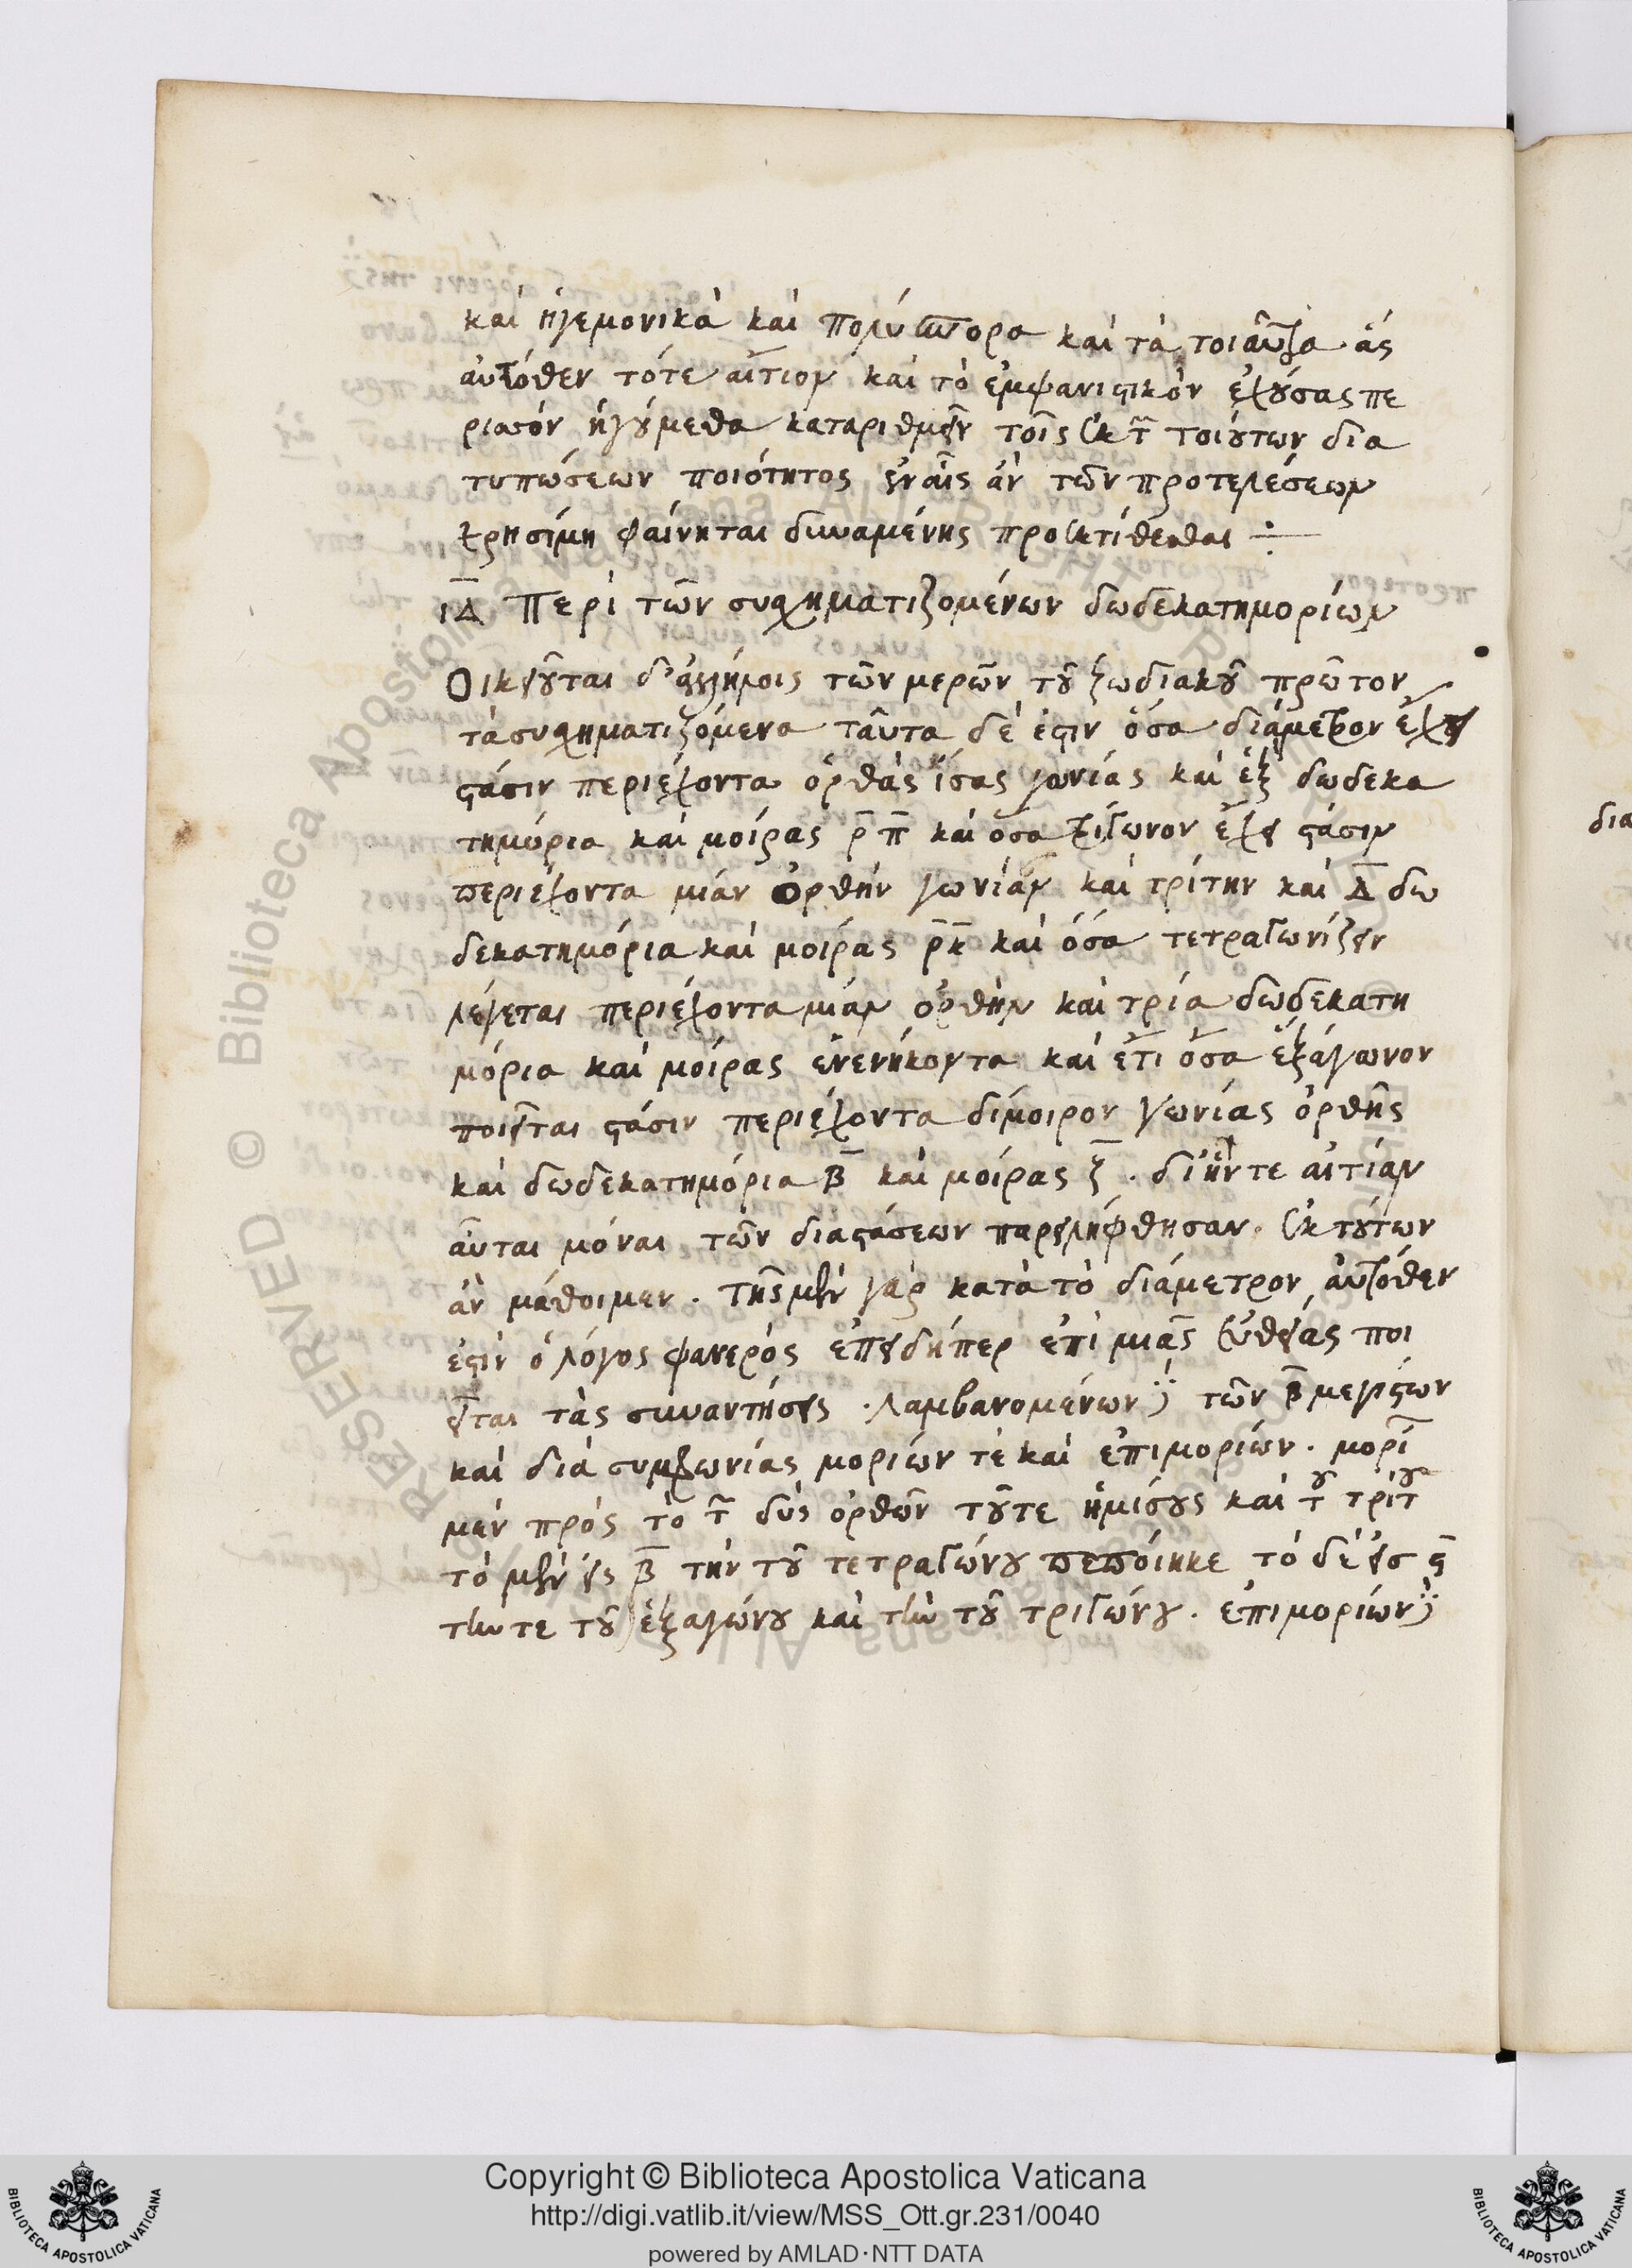 καὶ ἡγεμονικὰ καὶ πολύσπορα καὶ τὰ τοιαῦτα ἃς
αὐτόθεν τότε αἴτιον καὶ τὸ ἐμφανιστικὸν ἐχούσας πε
ρισσὸν ἡγούμεθα καταριθμεῖν τοῖς ἐκ τ̅ τοιούτων δια
τυπώσεων ποιότητος ἐν αἷς ἂν τῶν προτελέσεων
χρησίμη φαίνηται δυναμένης προεκτίθεσθαι
ιΔ Περὶ τῶν συσχηματιζομένων δωδεκατημορίων
Οἰκειοῦται δ' ἀλλήλοις τῶν μερῶν τοῦ ζωδιακοῦ πρῶτον
τὰ συσχηματιζόμενα ταῦτα δέ ἐστιν ὅσα διάμετρον ἔχει
στάσιν περιέχοντα ὀρθὰς ἴσας γωνίας καὶ ἓξ δωδεκα
τημόρια καὶ μοίρας ρ̅π̅ καὶ ὅσα τρίγωνον ἔχει στάσιν
περιέχοντα μίαν ὀρθὴν γωνίαν καὶ τρίτην καὶ Δ̅ δω
δεκατημόρια καὶ μοίρας ρ̅κ̅ καὶ ὅσα τετραγωνίζειν
λέγεται περιέχοντα μίαν ὀρθὴν καὶ τρία δωδεκατη
μόρια καὶ μοίρας ἐνενήκοντα καὶ ἔτι ὅσα ἑξάγωνον
ποιεῖται στάσιν περιέχοντα δίμοιρον γωνίας ὀρθῆς
καὶ δωδεκατημόρια Β̅ καὶ μοίρας ξ̅ . δι' ἥν τε αἰτίαν
αὗται μόναι τῶν διαστάσεων παρελήφθησαν . ἐκ τούτων
ἂν μάθοιμεν . τῆς μὲν γὰρ κατὰ τὸ διάμετρον αὐτόθεν
ἐστὶν ὁ λόγος φανερὸς ἐπειδήπερ ἐπὶ μιᾶς εὐθείας ποι
εῖται τὰς συναντήσεις . λαμβανομένων δὲ τῶν Β̅ μεγίστων
καὶ διὰ συμφωνίας μορίων τὲ καὶ ἐπιμορίων . μορί
μὲν πρὸς τὸ τ̅ δύο ὀρθῶν τοῦτε ἡμίσους καὶ τοῦ τρίτου
τὸ μὲν εἰς Β̅ τὴν τοῦ τετραγώνου πεποίηκε τὸ δὲ εἰσ
τήν τε τοῦ ἑξαγώνου καὶ τὴν τοῦ τριγώνου . ἐπιμορίων δὲ
δια
Copyright © Biblioteca Apostolica Vaticana
http://digi.vatlib.it/view/MSS_Ott.gr.231/0040
powered by AMLAD·NTT DATA